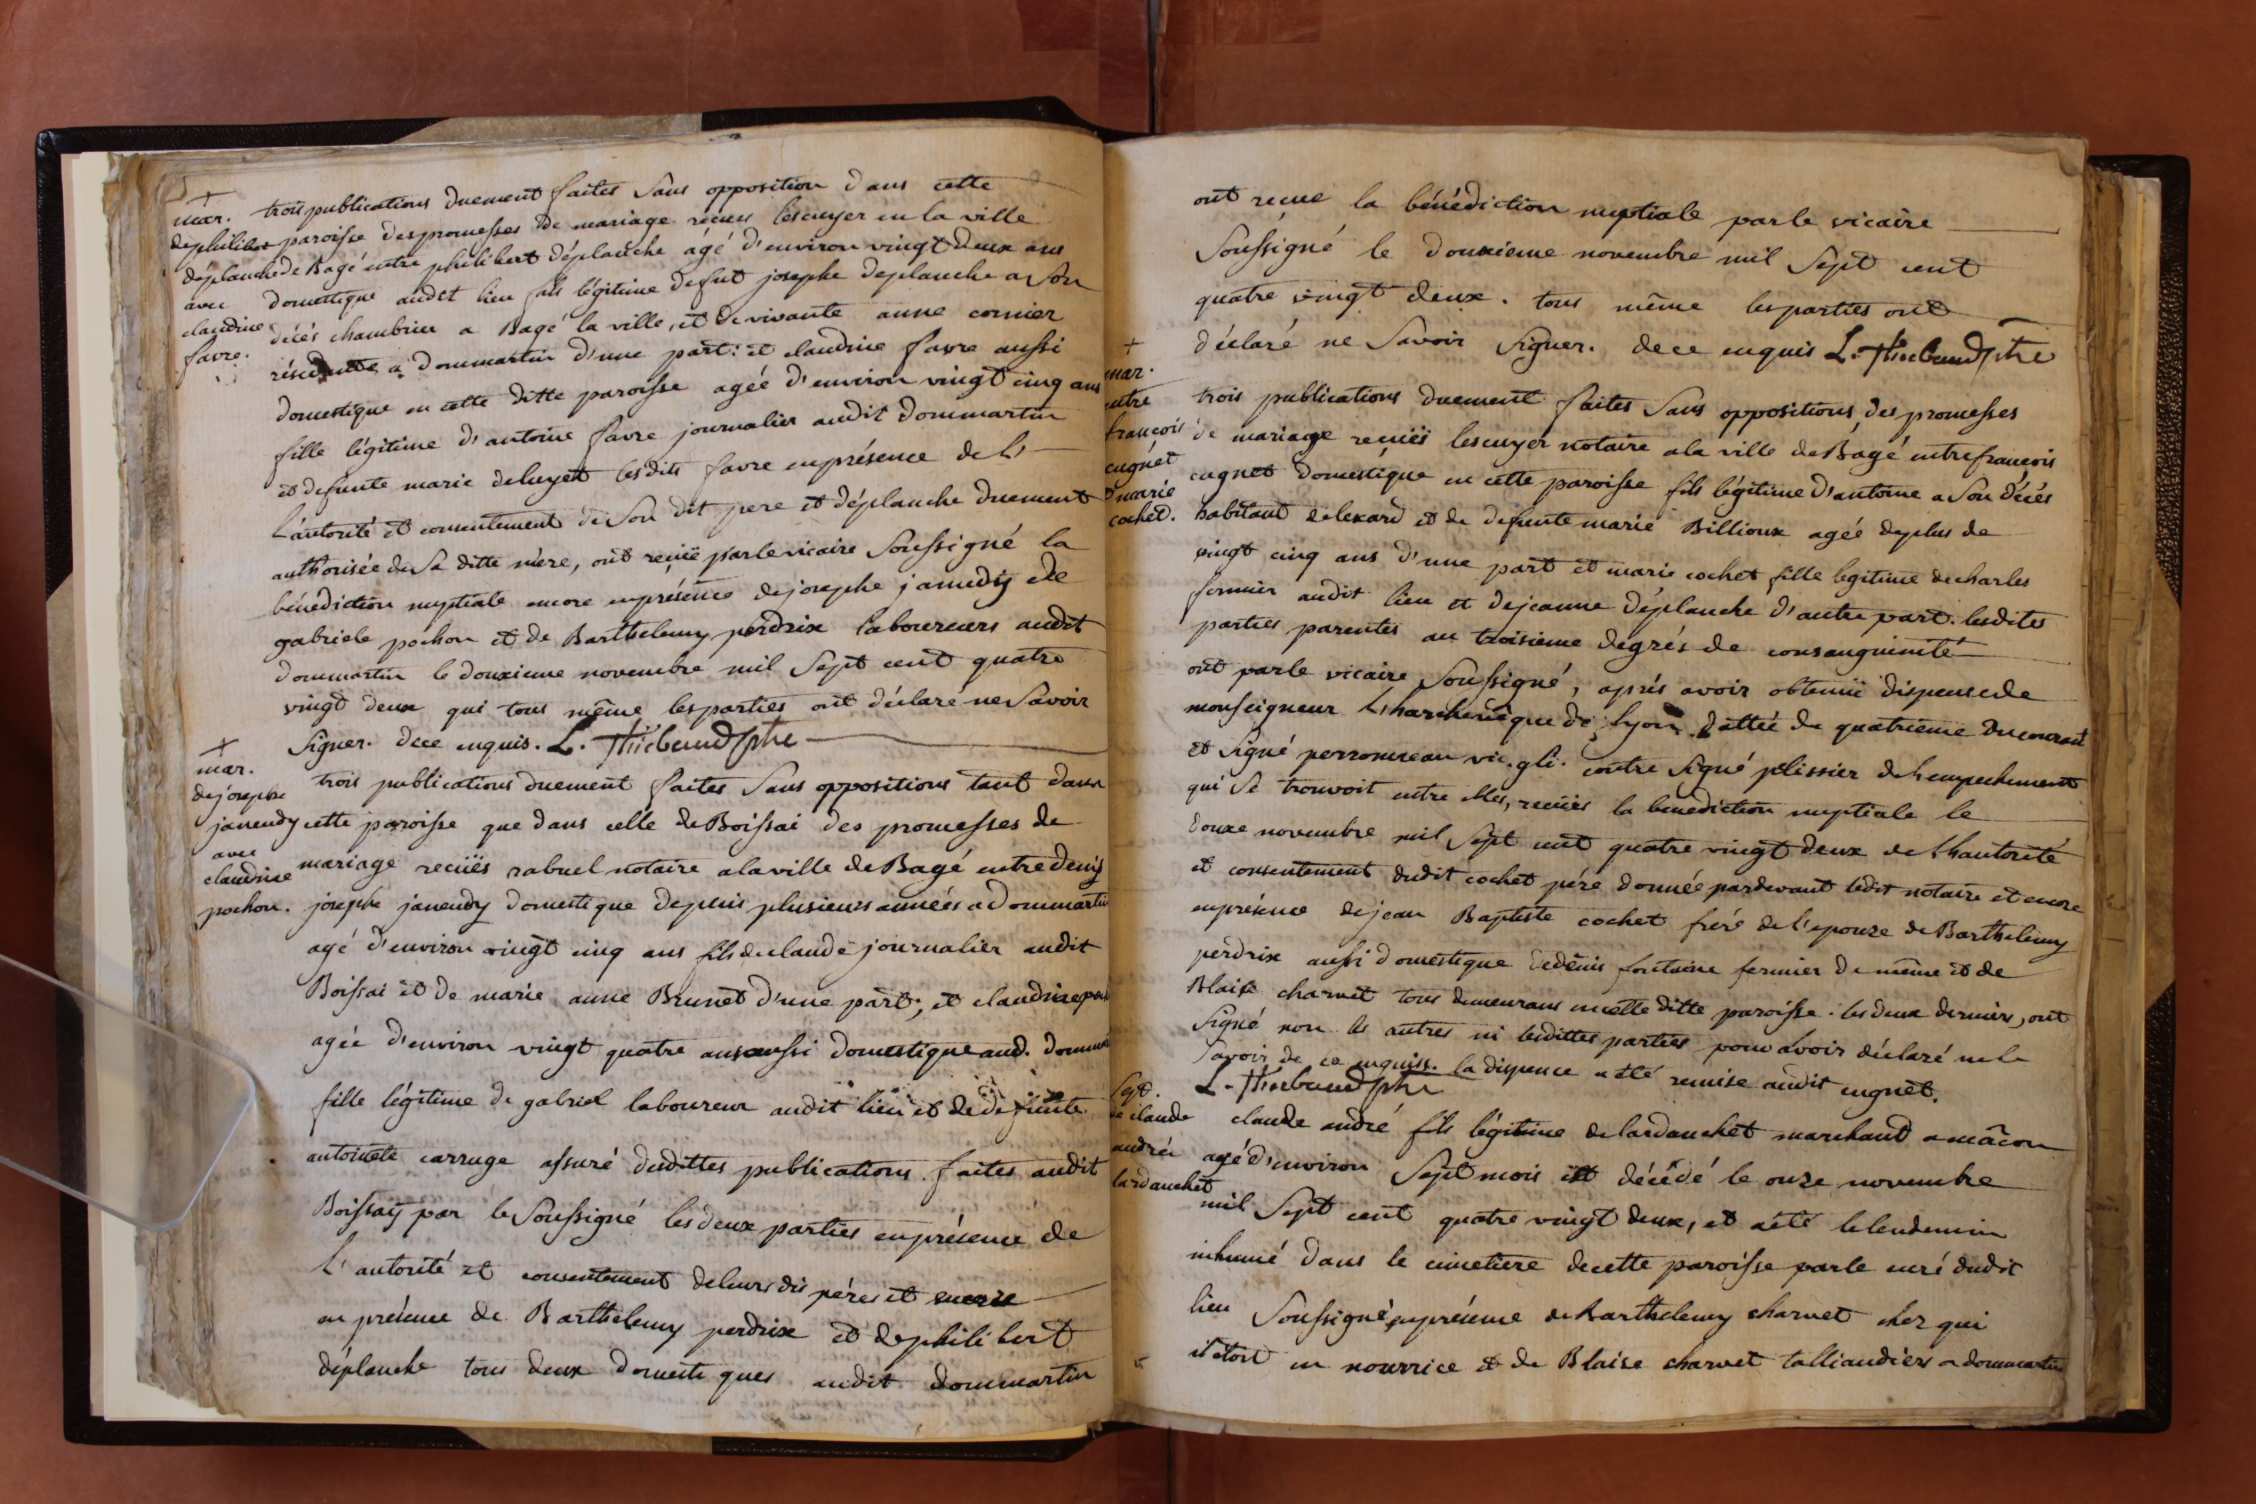 +
mar.
de philibert
deplanche
avec
claudine
favre.
trois publications duement faites sans opposition dans cette
paroisse des promesses de mariage recues lescuyer en la ville
de Bagé entre philibert déplanche âgé d'environ vingt deux ans
domestique audit lieu fils légitime de fut josephe deplanche a son
décés chambrier a Bagé la ville, et de vivante anne cornier
résidente a dommartin d'une part: et claudine favre aussi
domestique en cette ditte paroisse agée d'environ vingt cinq ans
fille légitime d'antoine favre journalier audit dommartin
et defunte marie deluyet lesdits favre en présence de
l'autorité et consentement de son dit pere et déplanche duement
authorisée de sa ditte mère, ont reçuë par le vicaire soussigné la
bénédiction nuptiale encore en présence de josephe janeudy de
gabriele pochon et de Barthelemy perdrix laboureurs audit
dommartin le douzieme novembre mil sept cent quatre
vingt deux qui tous même les parties ont déclaré ne savoir
signer. de ce enquis. L. Thiebaud ptre
+
mar.
de josephe
janeudy
avec
claudine
pochon.
trois publications duement faites sans oppositions tant dans
cette paroisse que dans celle de Boissai des promesses de
mariage recuës rabuel notaire a la ville de Bagé entre denis
josephe janeudy domestique depuis plusieurs années a dommartin
agé d'environ vingt cinq ans fils de claude journalier audit
Boissai et de marie anne Brunet d'une part; et claudine poch
agée d'environ vingt quatre ans aussi domestique aud. domma
fille légitime de gabriel laboureur audit lieu et de defunte
antoinete carruge assuré desdittes publications faites audit
Boissay par le soussigné les deux parties en présence de
l'autorité et consentement de leurs dis péres et encore
en présence de Barthelemy perdrix et de philibert
déplanche tous deux domestiques audit dommartin
ont recue la bénédiction nuptiale par le vicaire
soussigné le douxieme novembre mil sept cent
quatre vingt deux. tous même les parties ont
déclaré ne savoir signer. de ce enquis L. Thiebaud ptre
+
mar.
entre
francois
cugnet
& marie
cochet.
trois publications duement faites sans oppositions des promesses
de mariage reçuës lescuyer notaire a la ville de Bagé entre francois
cugnet domestique en cette paroisse fils légitime d'antoine a son décés
habitant de lexard et de defunte marie Billioux agéé de plus de
vingt cinq ans d'une part et marie cochet fille legitime de charles
fermier audit lieu et de jeanne déplanche d'autre part. lesdites
parties parentes au troisieme degrés de consanguinité
ont par le vicaire soussigné, aprés avoir obtenuë dispense de
monseigneur l'harchevêque de lyon dattée du quatrieme du courant
et signé perronneau vic. gl. contre signé pelissier de l'empechement
qui se trouvoit entre elles, recuës la benediction nuptiale le
douze novembre mil sept cent quatre vingt deux de l'hautorité
et consentement dudit cochet pére donnée pardevant ledit notaire et encore
en présence de jean Baptiste cochet frére de l'epouze de Barthelemy
perdrix aussi domestique de denis fontaine fermier de même et de
Blaise charvet tous demeurans en cette ditte paroisse. les deux derniers, ont
signé non les autres ni lesdittes parties pour avoir déclaré ne le
savoir de ce enquis. la dispence a été remise audit cugnet.
L. Thiebaud ptre
sept.
de claude
andréé
lardanchet
claude andré fils légitime de lardanchet marchand a mâcon
agé d'environ sept mois est décédé le onze novembre
mil sept cent quatre vingt deux, et a été le lendemain
inhumé dans le cimetiere de cette paroisse par le curé dudit
lieu soussigné en présence de barthelemy charvet chez qui
il etoit en nourrice et de Blaise charvet talliandiers a dommartin